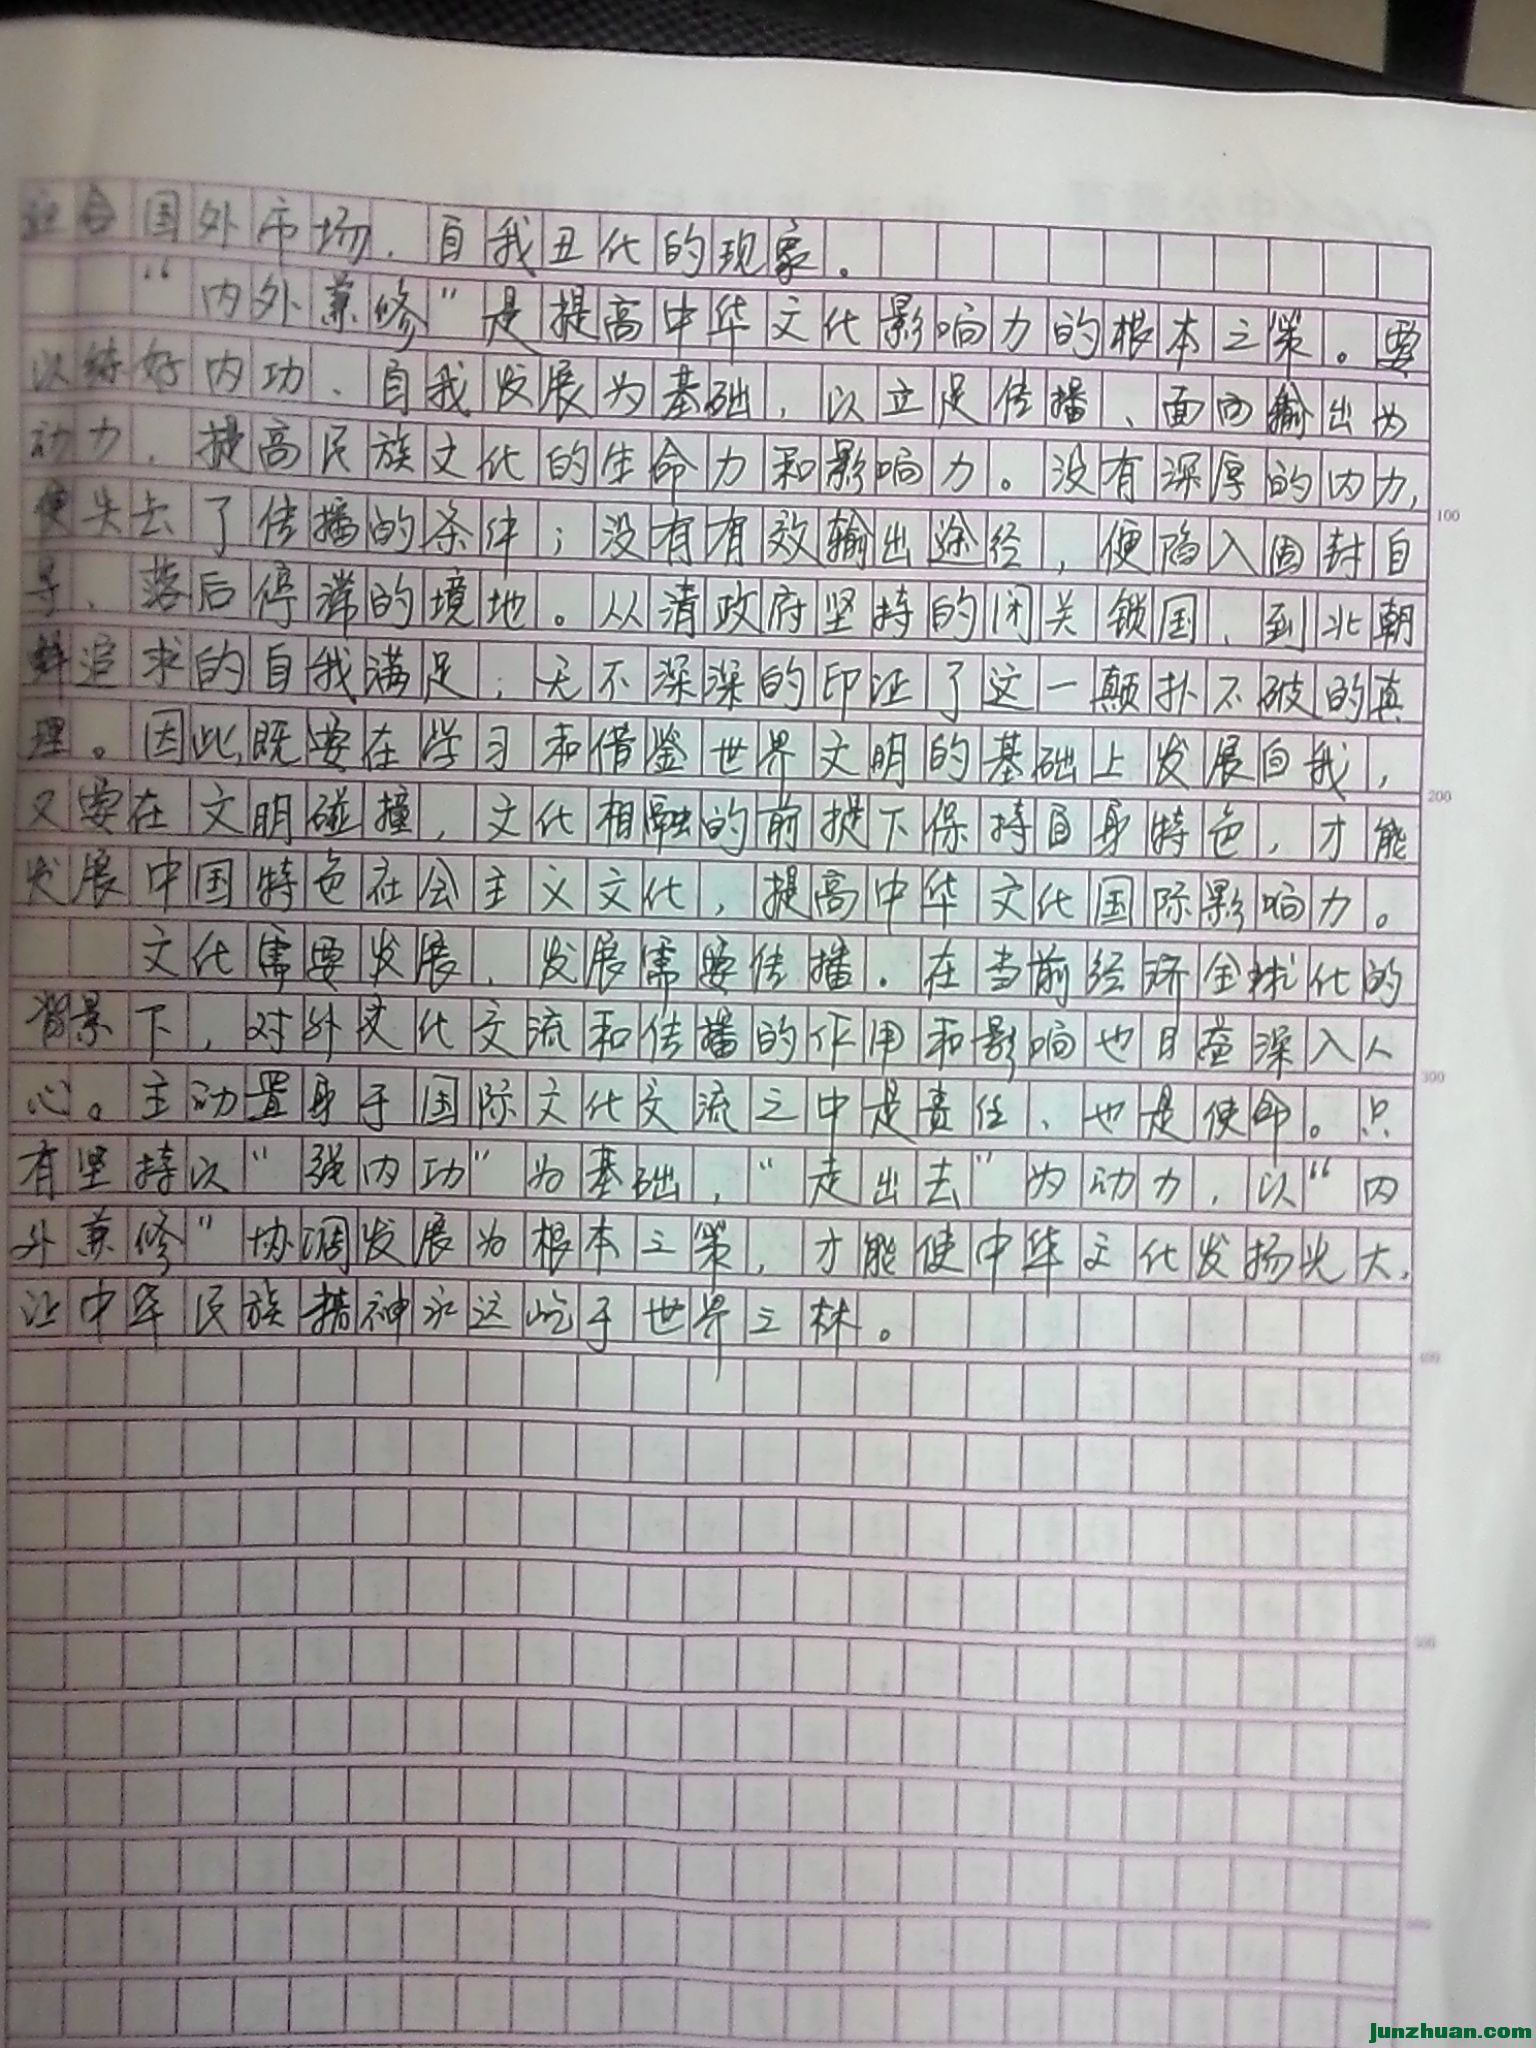 迎合国外市场，自我丑化的现象。
“内外兼修”是提高中华文化影响力的根本之策。要
以练好内功、自我发展为基础，以立足传播、面向输出为
动力，提高民族文化的生命力和影响力。没有深厚的内力，
便失去了传播的条件；没有有效输出途经，便陷入固封自
守、落后停滞的境地。从清政府坚持的闭关锁国，到北朝
鲜追求的自我满足，无不深深的印证了这一颠扑不破的真
理。因此既要在学习和借鉴世界文明的基础上发展自我，
又要在文明碰撞，文化相融的前提下保持自身特色，才能
发展中国特色社会主义文化，提高中华文化国际影响力。
文化需要发展，发展需要传播。在当前经济全球化的
背景下，对外文化交流和传播的作用和影响也日益深入人
心。主动置身于国际文化交流之中是责任、也是使命。只
有坚持以“强内功”为基础，“走出去”为动力，以“内
外兼修”协调发展为根本之策，才能使中华文化发扬光大，
让中华民族精神永远屹于世界之林。
100
200
300
400
500
junzhuan.com